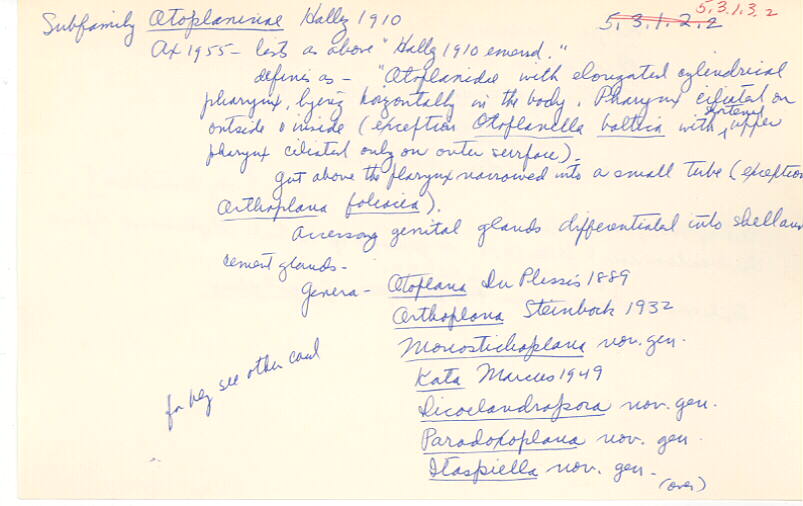 5.3.1.3.2
Subfamily Otoplaninae Hallez 1910 5.3.1.2.2
Ax 1955 - lists as above "Hallez 1910 emend."
defines as - "Otoplanidae with elongated cylindrical
pharynx, lying horizontally in the body. Pharynx ciliated on
outside & inside (exception Otoplanella baltica with upper
pharynx ciliated only on outer surface).
gut above the pharynx narrowed into a small tube (exception
Orthoplana foliacea).
Accessory genital glands differentiated into shell and
cement glands -
Genera - Otoplana Du Plessis 1889
Orthoplana Steinbock 1932
Monostichoplana nov. gen.
Kata Marcus 1949
Dicoelandropora nov. gen.
Paradoxoplana nov. gen.
Itaspiella nov. gen.
(over)
for key see other card